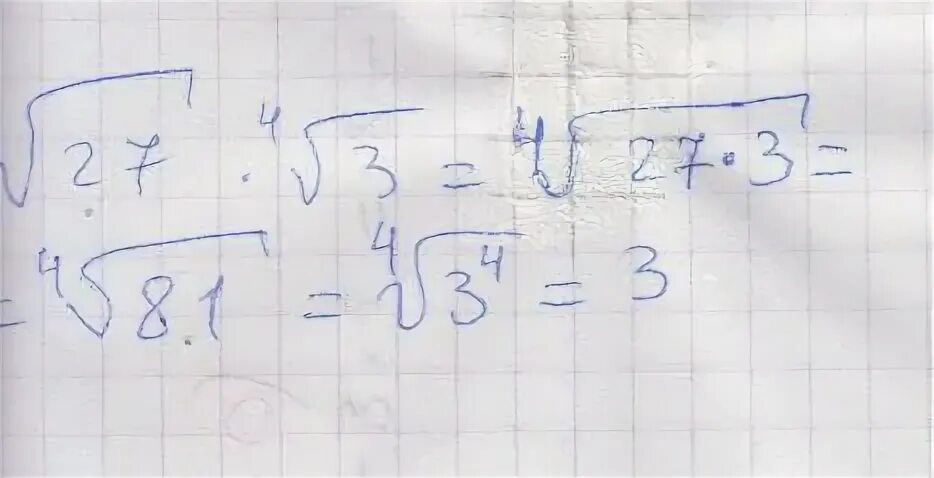 √27 · ⁴√3 = ⁴√27·3 =
= ⁴√81 = ⁴√3⁴ = 3